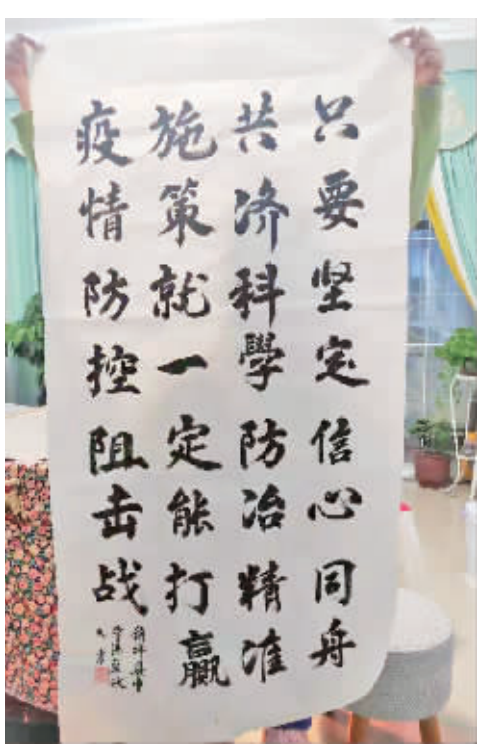 只要坚定信心同舟
共济科學防治精准
施策就一定能打赢
疫情防控阻击战